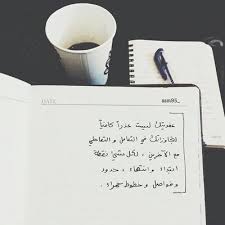 DATE
asm93_
عفويتك ليست عذراً كافياً
لتجاوزاتك في التعامل والتعاطي
مع الآخرين ، لكل شيء نقطة
ابتداء وانتهاء ، حدود
وفواصل وخطوط حمراء .